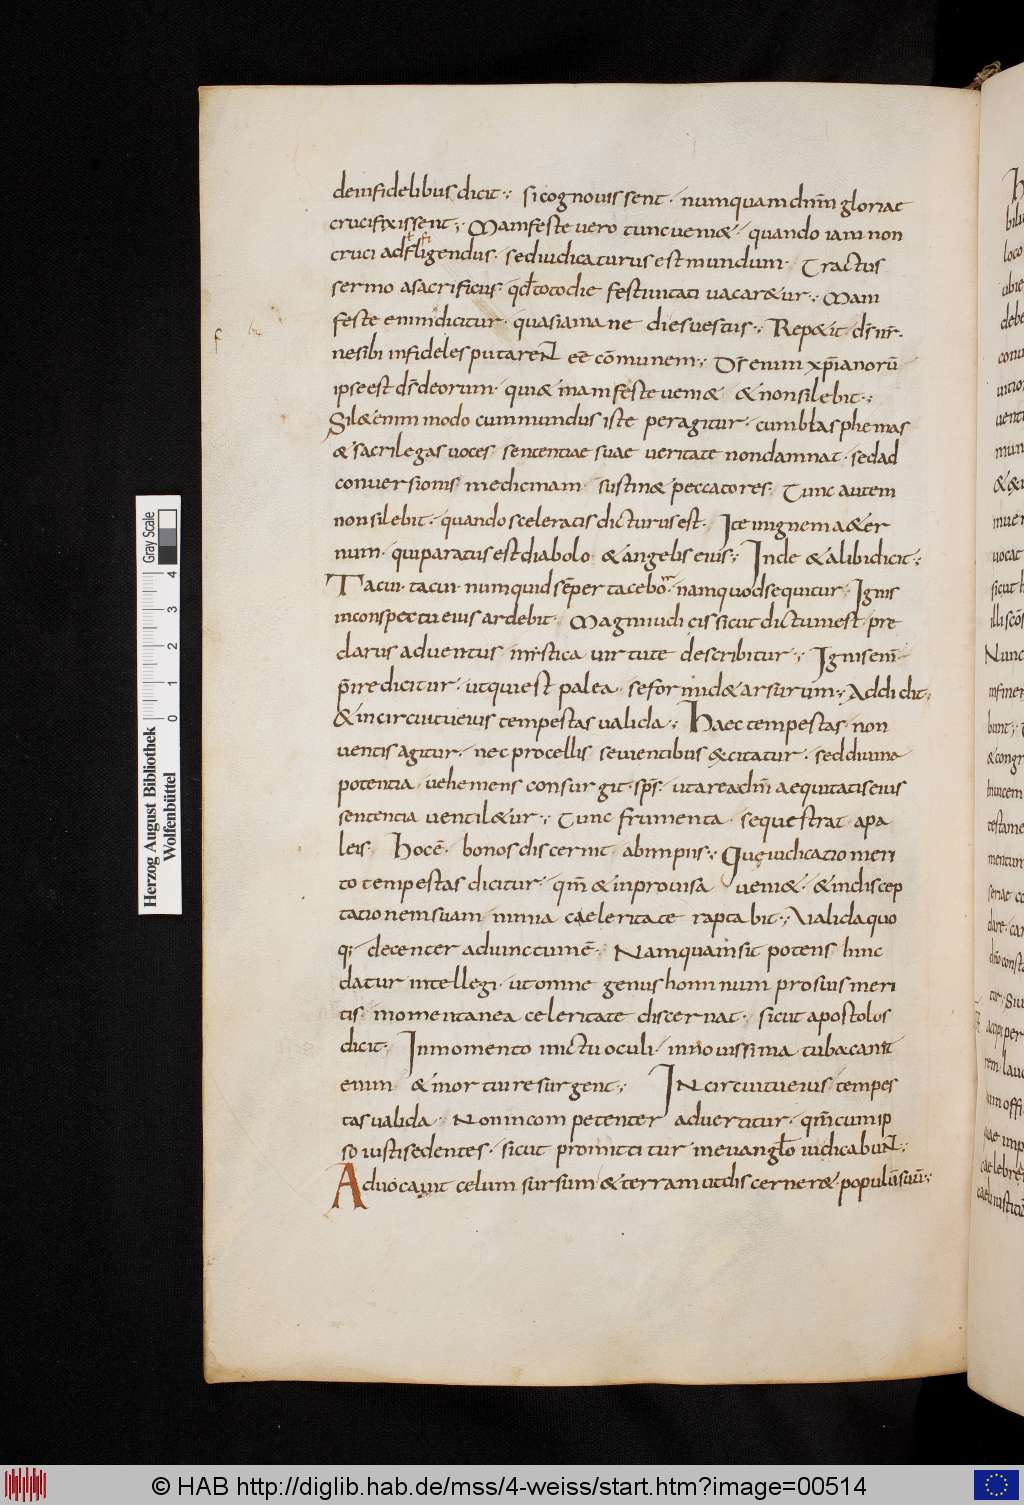 deinfidelibus dicit· si cognouissent· numquam dnm̄ gloriae
crucifixissent· Manifeste uero tunc ueni&· quando iam non
cruci adfligendus· sed iudicaturus est mundum· Tractus
sermo a sacrificiis· qđ toto die festiuitati uacar&ur· Mani
feste enim dicitur· quasi a mane dies uestus· Rep&it· ds̄ nr̄·
ne sibi infideles putarent eē cōmunem· Ds̄ enim xp̄ianorū
ipse est ds̄ deorum· qui & manifeste ueni& & non silebit·
Sil& enim modo cum mundus iste peragitur· cum blasphemas
& sacrilegas uoces sententiae suae ueritate non damnat· sed ad
conuersionis medicinam sustin& peccatores· Tunc autem
non silebit· quando sceleratis dicturus est· Ite in ignem a&er
num· qui paratus est diabolo & angelis eius· Inde & alibi dicit·
Tacui· tacui· numquid sēper tacebo· nam quod sequitur· Ignis
in conspectu eius ardebit· Magni iudicis sicut dictum est pre
clarus aduentus mistica uirtute describitur· Ignis enī
p̄ire dicitur· ut qui est palea se formid& arsurum· Addidit·
& in circuitu eius tempestas ualida· Haec tempestas non
uentis agitur· nec procellis seuientibus &citatur· sed diuina
potentia uehemens consurgit sps̄· ut area dnī aequitatis eius
sententia uentil&ur· Tunc frumenta sequestrat a pa
leis· Hoc ē· bonos discernit ab impiis· Que iudicatio meri
to tempestas dicitur· qm̄ & inprouisa ueni&· & in discep
tationem suam nimia caeleritate raptabit· Ualida quo
q; decenter adiunctum ē· Nam quam sit potens hinc
datur intellegi· ut omne genus hominum pro suis meri
tis momentanea celeritate discernat· sicut apostolus
dicit· In momento in ictu oculi· in nouissima tuba canit
enim & mortui resurgent· In circuitu eius tempes
tas ualida· Non incompetenter aduertitur· qm̄ cum ip
so iusti sedentes· sicut promittitur in euanglo iudicabunt·
Aduocauit celum sursum & terram ut discerner& populū suū·
Herzog August Bibliothek
Wolfenbüttel
0 1 2 3 4
Gray Scale
© HAB http://diglib.hab.de/mss/4-weiss/start.htm?image=00514